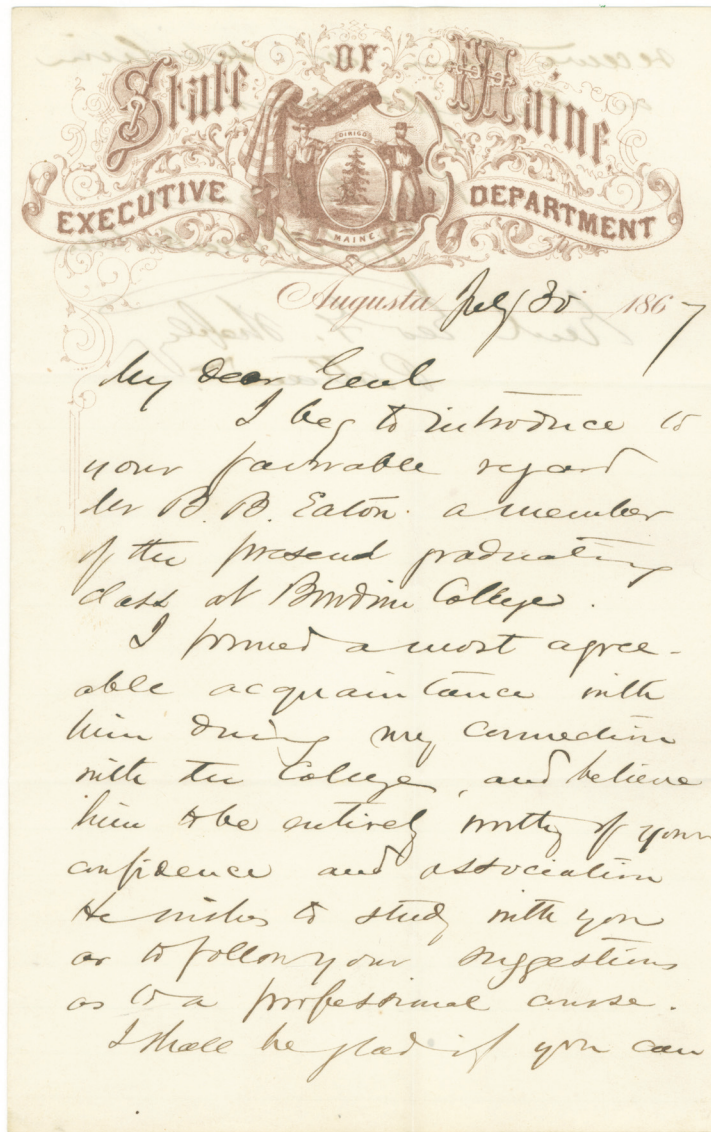 State OF Maine
EXECUTIVE DEPARTMENT
DIRIGO
MAINE
Augusta July 30 1867
My dear Genl
I beg to introduce to
your favorable regard
Mr B. B. Eaton. a member
of the present graduating
class at Bowdoin College.
I formed a most agree-
able acquaintance with
him during my connection
with the College, and believe
him to be entirely worthy of your
confidence and association
He wishes to study with you
or to follow your suggestions
as to a professional course.
I shall be glad if you can